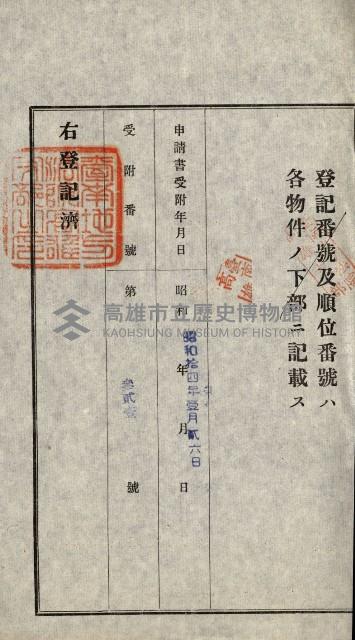 登記番號及順位番號ハ
各物件ノ下部ニ記載ス
申請書受附年月日 昭和 年 月 日
昭和拾四年壹月貳六日
受附番號 第 號
右登記濟
高雄市立歷史博物館
KAOHSIUNG MUSEUM OF HISTORY